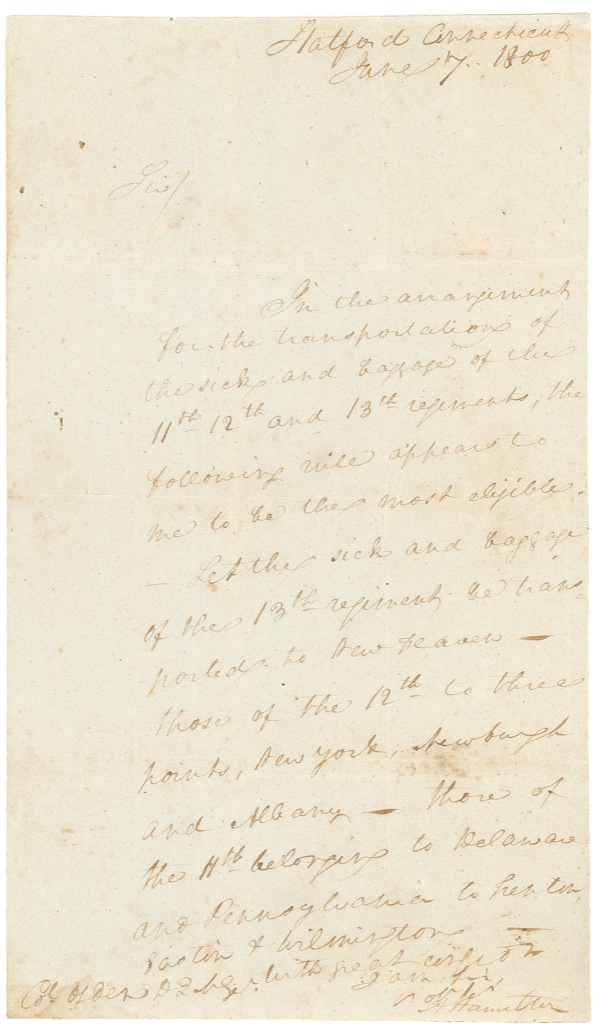 Hatford Connecticut
June 7th. 1800
Sir/
In the arrangement
for the transportation of
the sick and baggage of the
11th 12th and 13th regiments, the
following rule appears to
me to be the most eligible.
— Let the sick and baggage
of the 13th regiment be trans-
ported to New Haven —
those of the 12th to three
points, New York, Newburgh
and Albany — those of
the 11th belonging to Delaware
and Pennsylvania to Trenton,
Easton & Wilmington —
With great
I am, Sir,
Col. Ogden D
A Hamilton